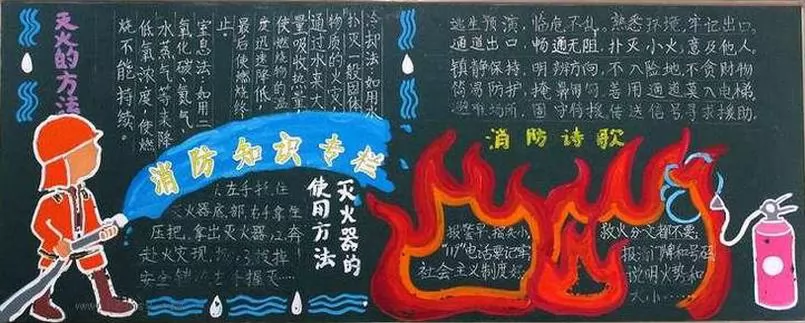 灭火的方法
冷却法:如用水
扑灭一般固体
物质的火灾,
通过水来大
量吸收热量,
使燃烧物的温
度迅速降低,
最后使燃烧终
止。
窒息法:如用二
氧化碳、氮气、
水蒸气等来降
低氧浓度,使燃
烧不能持续。
消防知识专栏
灭火器的
使用方法
左手托住
灭火器底部,右手拿住
压把,拿出灭火器,奔
赴火灾现场
逃生预演,临危不乱。熟悉环境,牢记出口。
通道出口,畅通无阻。扑灭小火,惠及他人。
镇静保持,明辨方向。不入险地,不贪财物
简易防护,掩鼻匍匐。善用通道,莫入电梯,
避难场所,固守待援。传送信号,寻求援助。
消防诗歌
报警早,损失小,
"119"电话要记牢,
社会主义制度好,
救火分文都不要。
报清门牌和号码,
说明火势和
大小……